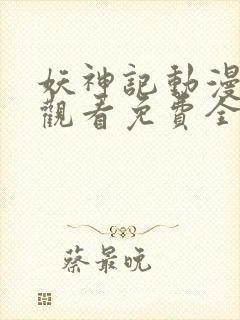 妖神記動漫
觀看免費全
蔡最晚